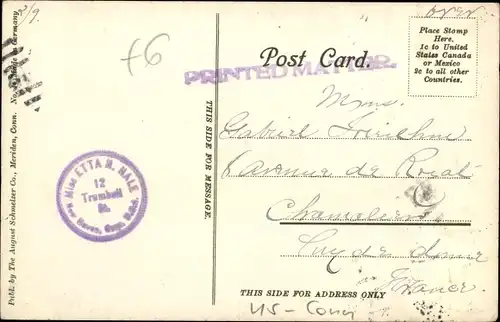 3/9.
f6
Post Card.
PRINTED MATTER.
Place Stamp
Here.
1c to United
States Canada
or Mexico
2c to all other
Countries.
Publ. by The August Schmelzer Co., Meriden, Conn. No. Germany.
THIS SIDE FOR MESSAGE.
Miss ETTA M. HALE
12
Trumbull
St.
New Haven, Conn. U.S.A.
Mme.
Gabriel
6 Avenue de Royat
Chamalieres
Puy de dome
France
THIS SIDE FOR ADDRESS ONLY
US - Conn